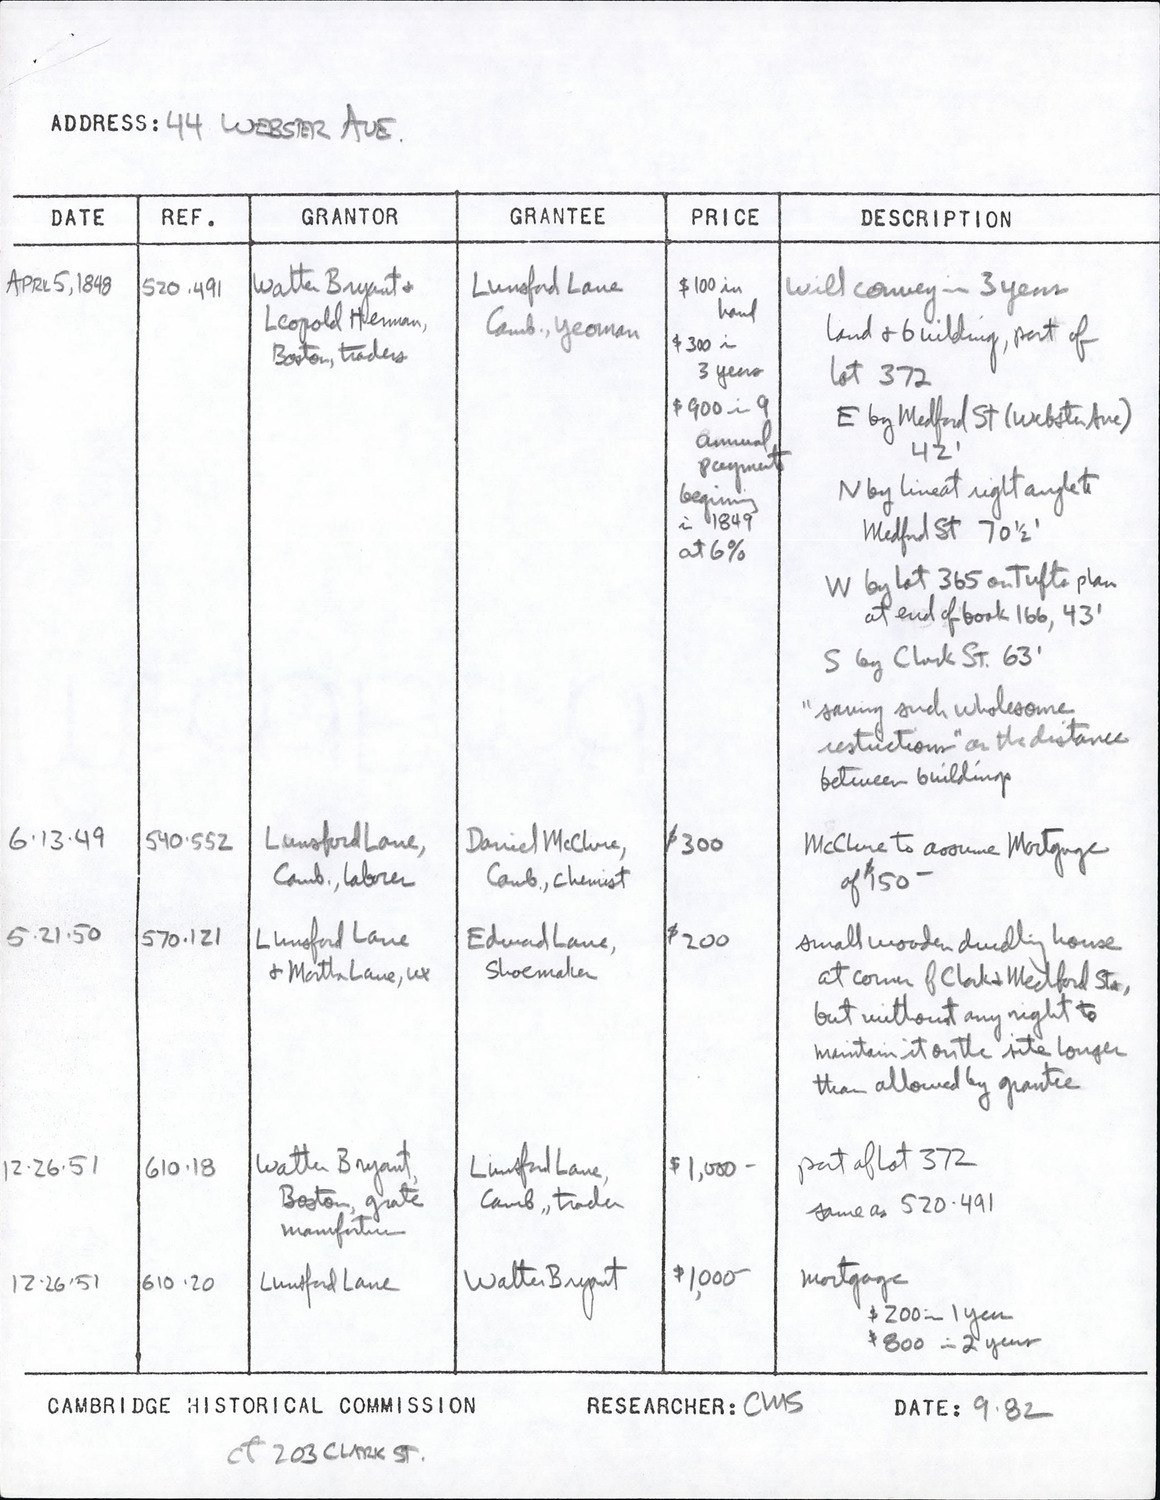 ADDRESS: 44 WEBSTER AVE.
DATE REF. GRANTOR GRANTEE PRICE DESCRIPTION
APRIL 5, 1848
520.491
Walter Bryant &
Leopold Herman,
Boston, traders
Lunsford Lane
Camb., yeoman
$100 in
hand
$300 in
3 years
$900 in 9
annual
payments
beginning
in 1849
at 6%
will convey in 3 years
land & building, part of
lot 372
E by Medford St (Webster Ave)
42'
N by line at right angle to
Medford St 70½'
W by lot 365 on Tufts plan
at end of book 166, 43'
S by Clark St. 63'
"saving such wholesome
restrictions" on the distance
between buildings
6.13.49
540.552
Lunsford Lane,
Camb., laborer
Daniel McClure,
Camb., chemist
$300
McClure to assume Mortgage
of $150-
5.21.50
570.121
Lunsford Lane
& Martha Lane, ux
Edward Lane,
Shoemaker
$200
small wooden dwelling house
at corner of Clark & Medford Sts,
but without any right to
maintain it on the site longer
than allowed by grantee
12.26.51
610.18
Walter Bryant,
Boston, grate
manufacturer
Lunsford Lane,
Camb., trader
$1,000-
part of lot 372
same as 520.491
12.26.51
610.20
Lunsford Lane
Walter Bryant
$1,000-
mortgage
$200 in 1 year
$800 in 2 years
CAMBRIDGE HISTORICAL COMMISSION RESEARCHER: CMS DATE: 9.82
cf 203 CLARK ST.